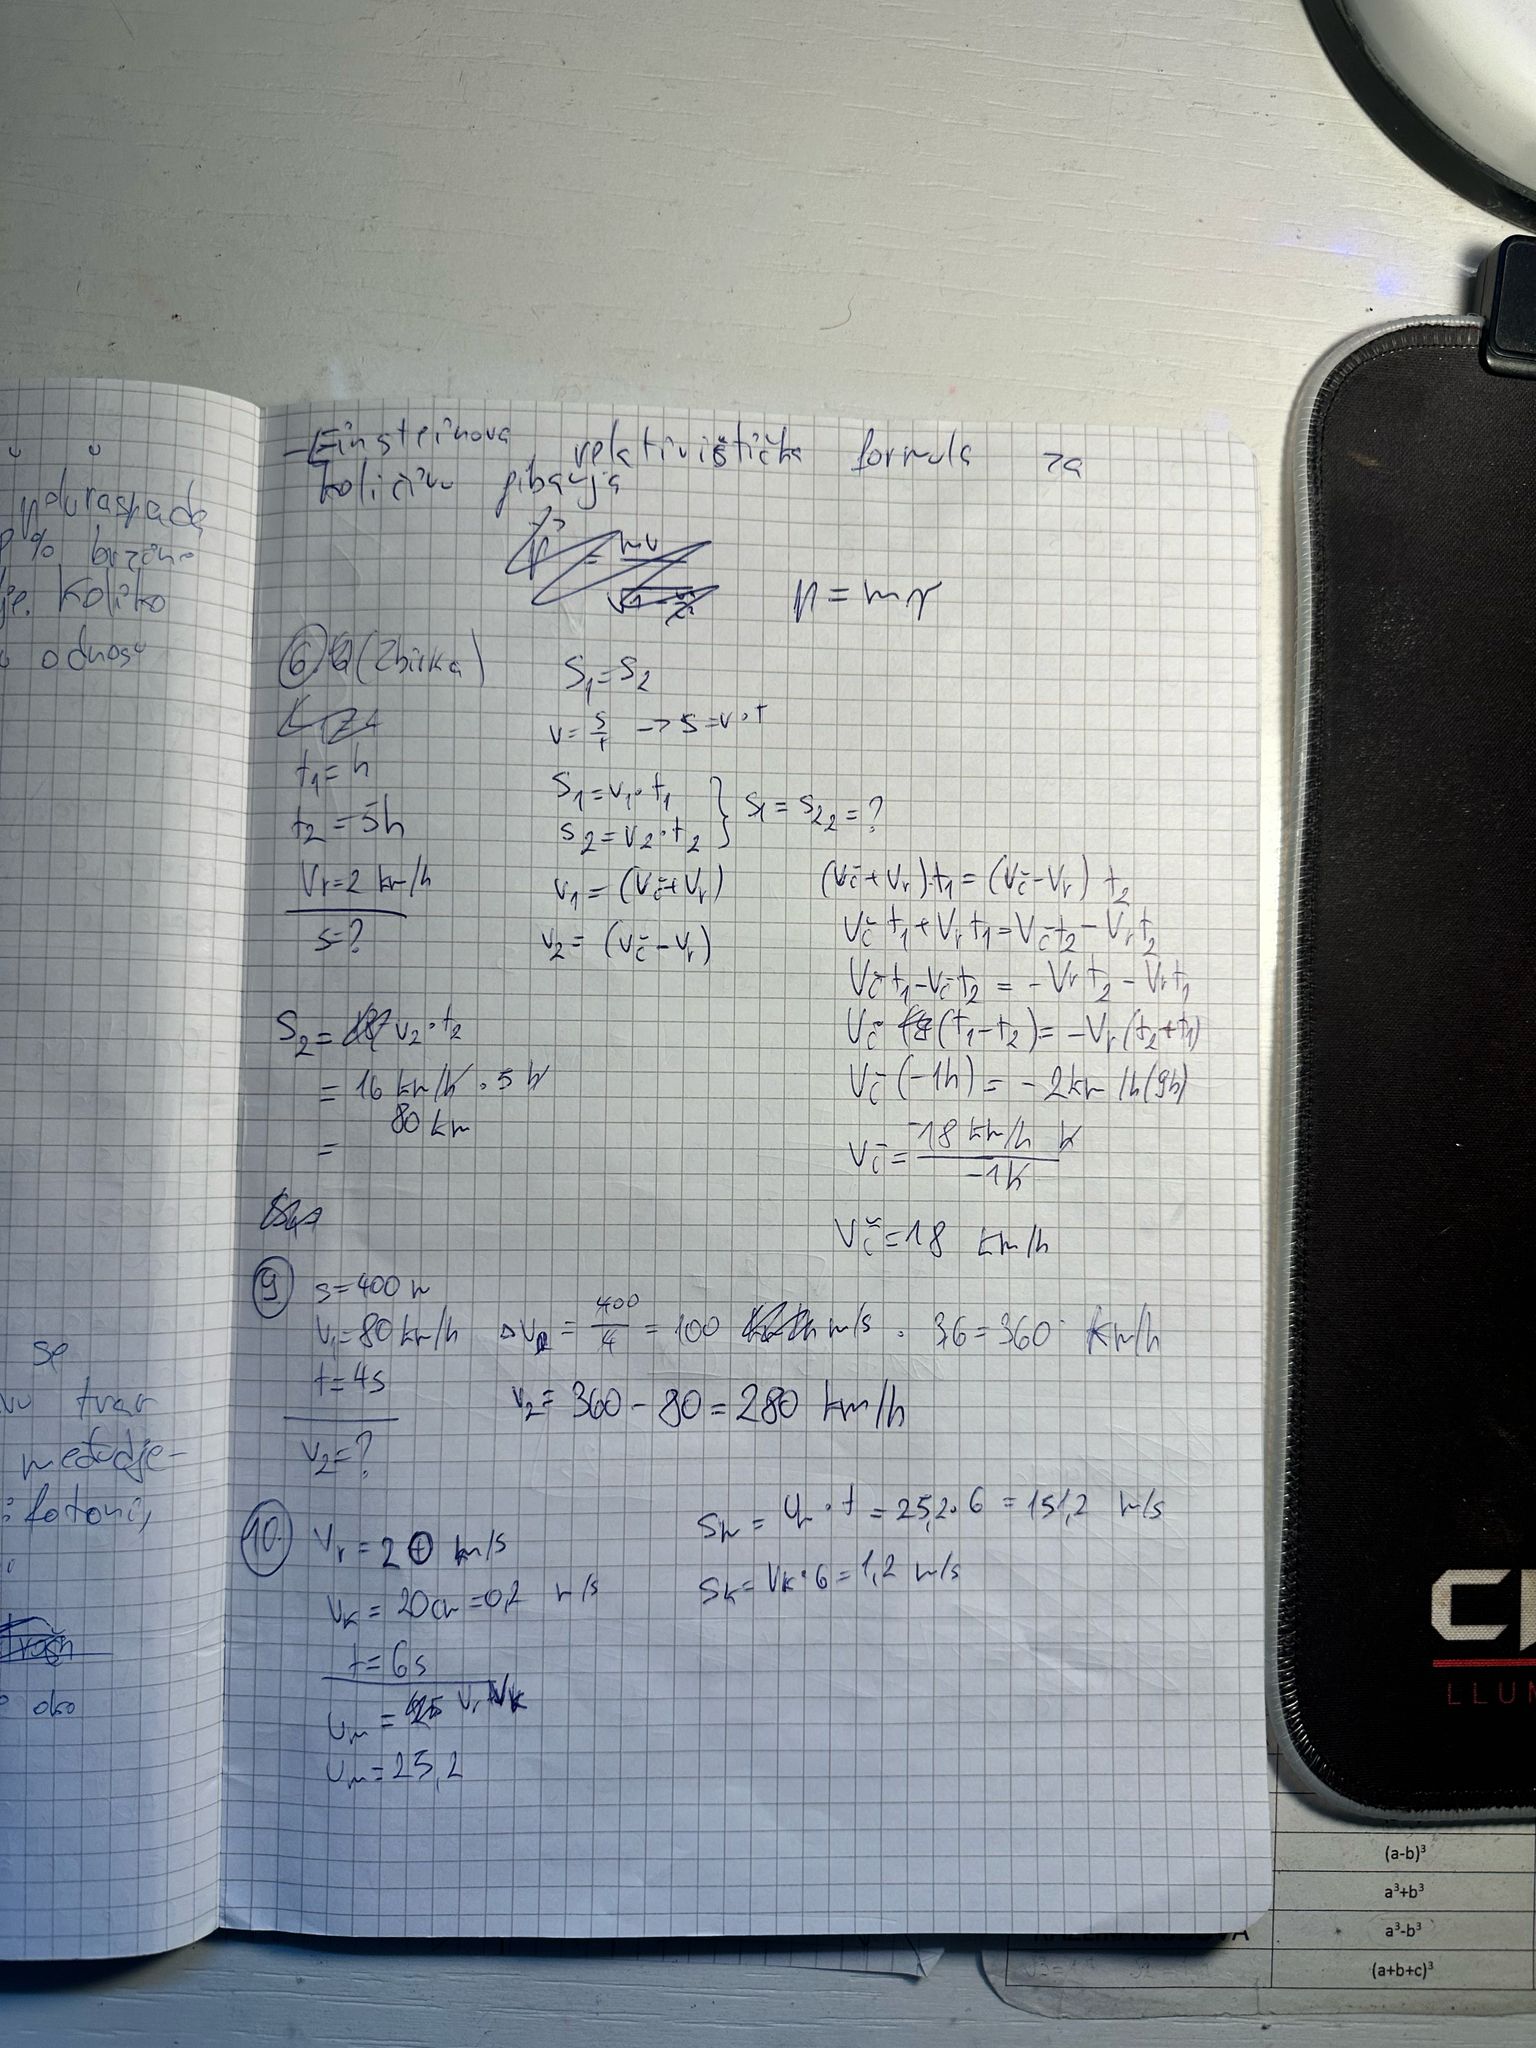 poluraspada
% brzine
je. Koliko
u odnosu
se
tvar
međudje-
fotoni,
oko
-Einsteinova relativistička formula za
količinu gibanja
p = mv
6. (Zbirka)
t₁= h
t₂ = 5h
Vr=2 km/h
s=?
S₁=S₂
v= s/t -> s=v·t
S₁=v₁·t₁
S₂=v₂·t₂ } S₁ = S₂ = ?
v₁= (Vč+Vr)
v₂= (Vč-Vr)
(Vč+Vr)·t₁=(Vč-Vr) t₂
Vč t₁+Vr t₁=Vč t₂-Vr t₂
Vč t₁-Vč t₂ = -Vr t₂ - Vr t₁
Vč (t₁-t₂)= -Vr (t₂+t₁)
Vč (-1h) = -2km/h(9h)
Vč = -18 km/h h / -1h
Vč=18 km/h
S₂= v₂·t₂
= 16 km/h · 5 h
= 80 km
9 s=400 m
V₁=80 km/h
t=4s
v₂=?
ΔV = 400/4 = 100 m/s · 3,6 = 360 km/h
v₂= 360 - 80 = 280 km/h
10. Vr = 2 m/s
Vk = 20cm=0,2 m/s
t=6s
Vm = Vr+Vk
Vm=25,2
Sm = Vm·t = 25,2·6 = 151,2 m/s
Sk = Vk·6=1,2 m/s
LLUM
(a-b)³
a³+b³
a³-b³
(a+b+c)³